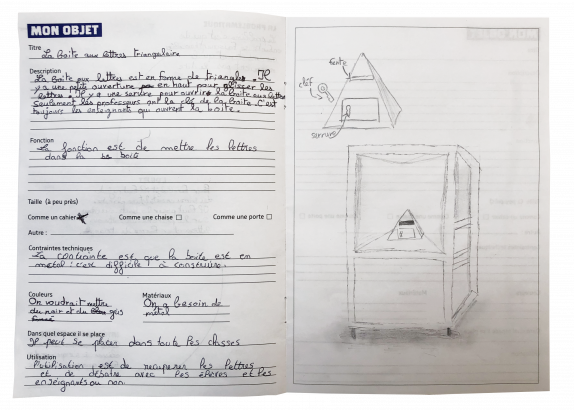 MON OBJET
Titre
La boite aux lettres triangulaire
Description
La boite aux lettres est en forme de triangle. Il
y a une petite ouverture en haut pour glisser les
lettres. Il y a une serrure pour ouvrir la boite aux lettres
seulement les professeurs ont la clé de la boite. C'est
toujours les enseignants qui ouvrent la boite.
Fonction
La fonction est de mettre les lettres
dans la boite
Taille (à peu près)
Comme un cahier Comme une chaise Comme une porte
Autre :
Contraintes techniques
La contrainte est que la boite est en
métal : c'est difficile à construire.
Couleurs
On voudrait mettre
du noir et du gris
Matériaux
On a besoin de
métal
Dans quel espace il se place
Il peut se placer dans toute les classes
Utilisation
l'utilisation est de récuperer les lettres
et de débatre avec les élèves et les
enseignants ou non.
fente
clef
serrure